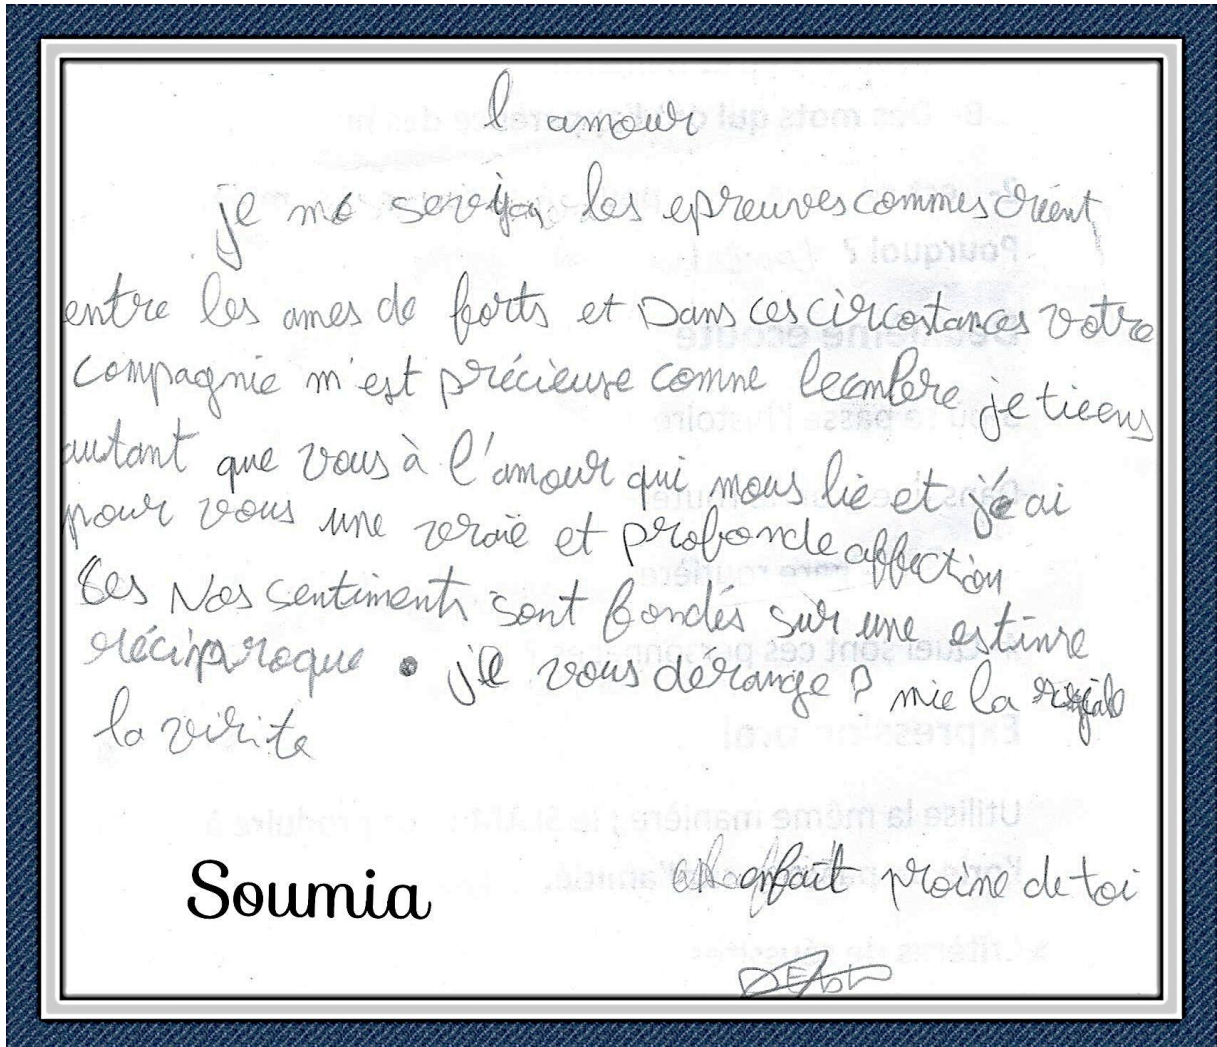 l'amour
je me les epreuves commes crient
entre les ames de forts et Dans ces circostances votre
compagnie m'est précieuse comne je tieens
autant que vous à l'amour qui mous lie et j'ai
pour vous une vraie et profonde affection
Ses Nos sentiments sont fondés sur une estime
réciproque . je vous dérange ? mie la
la virite
Soumia
proine de toi